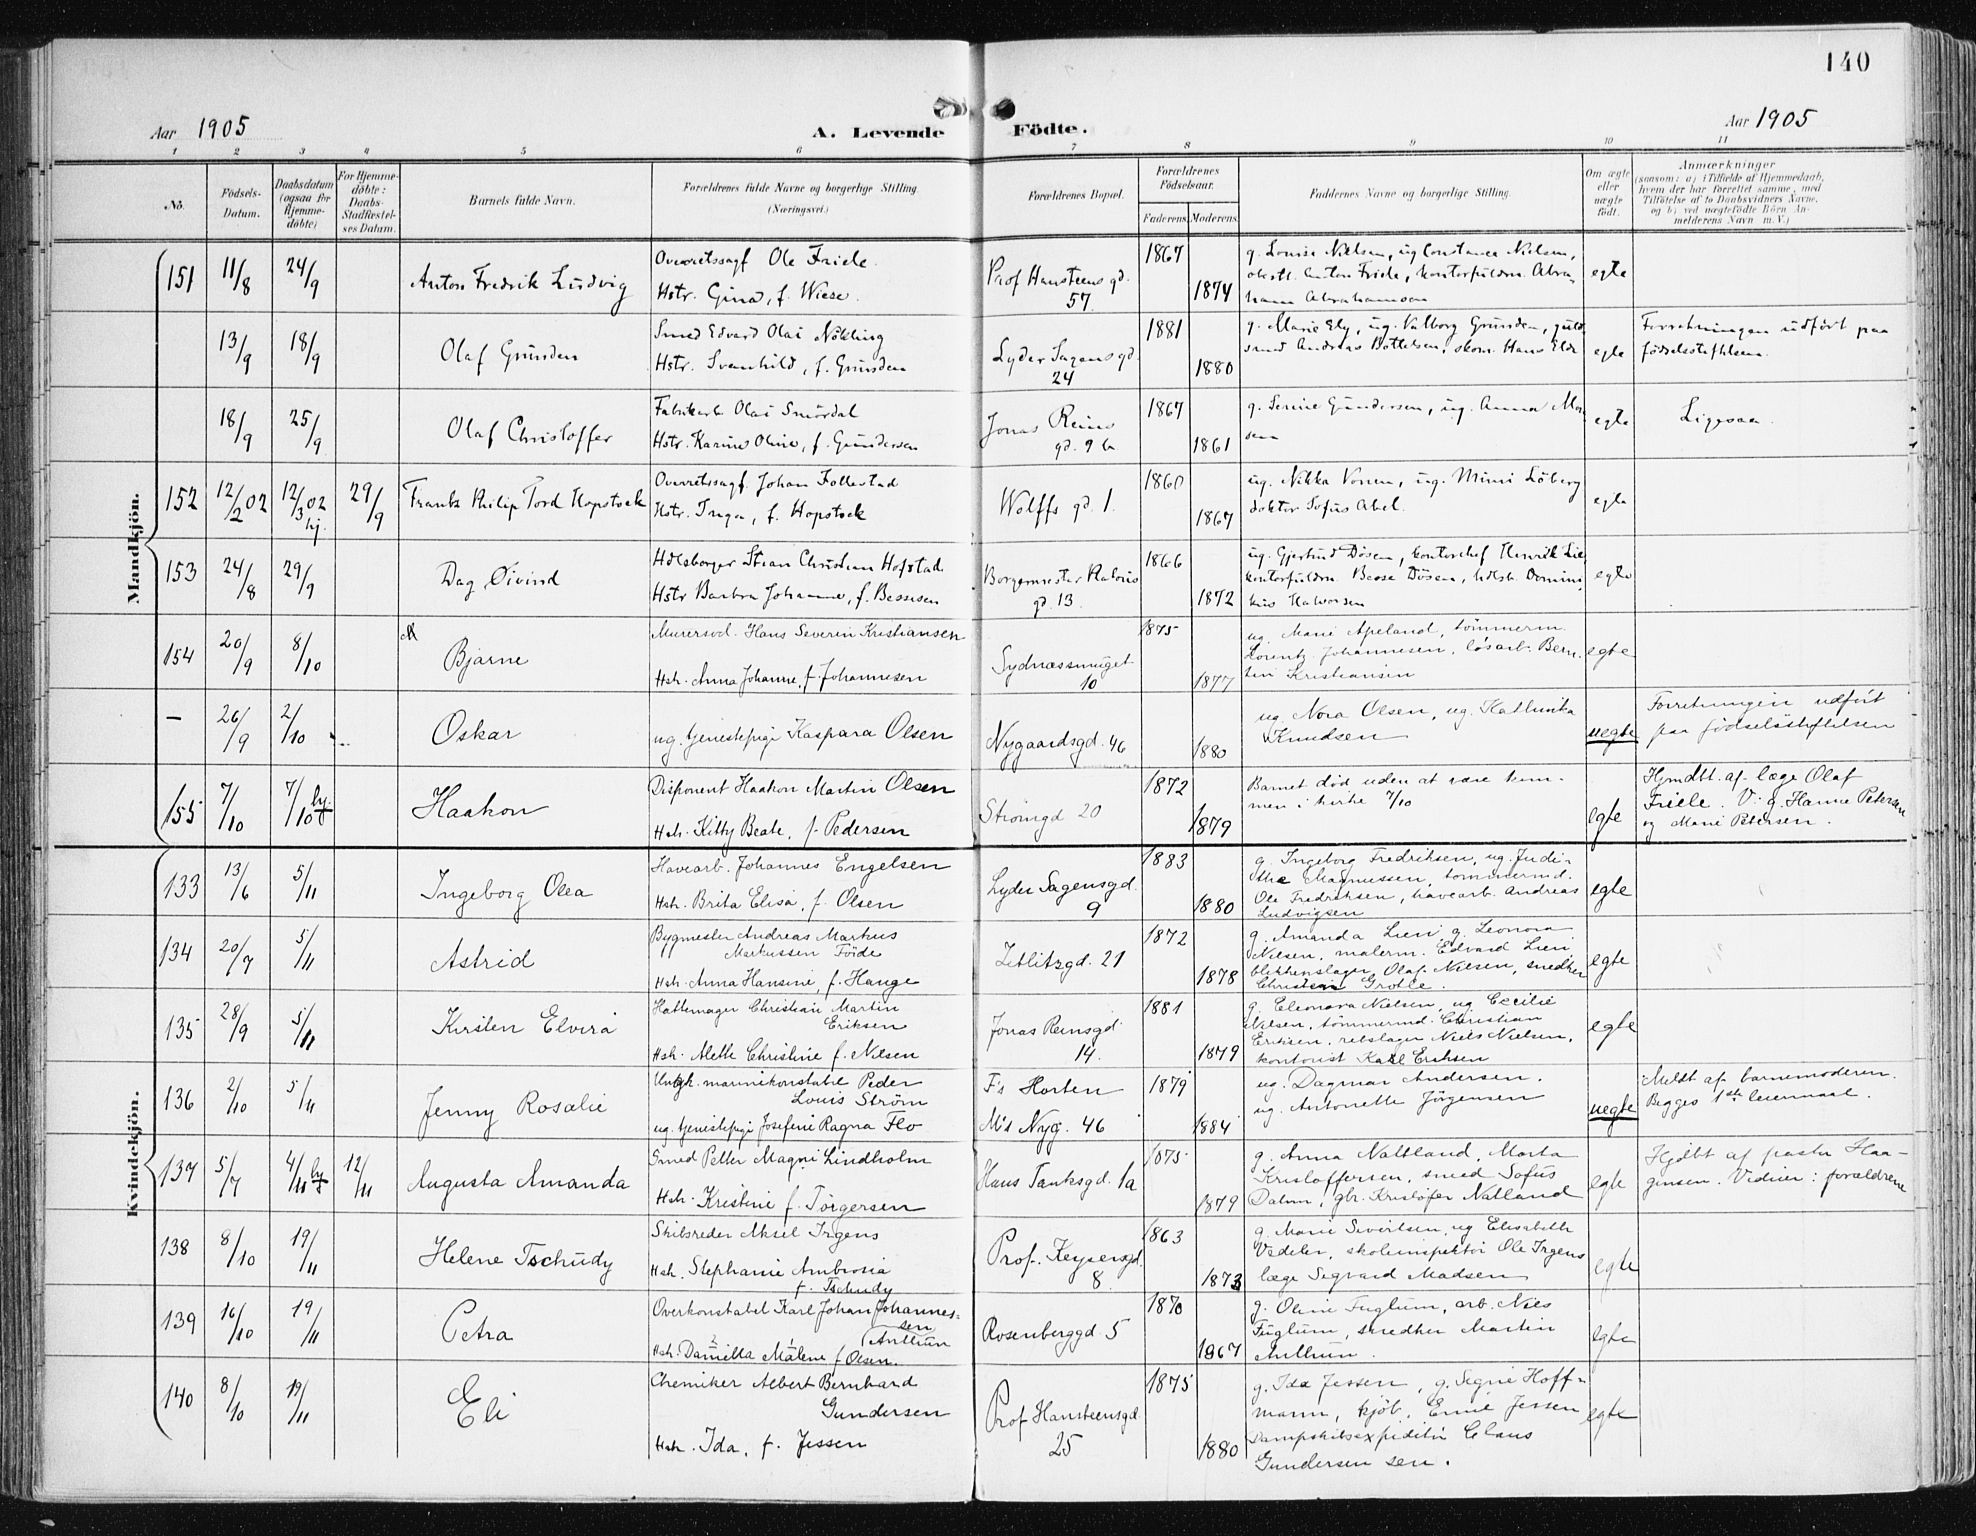 140
Aar 1905
A. Levende Födte.
Aar 1905
1 2 3 4 5 6 7 8 9 10 11
No.
Födsels-Datum.
Daabsdatum (ogsaa for Hjemme-döbte)
For Hjemme-döbte: Daabs-Stadfæstel-ses Datum.
Barnets fulde Navn.
Forældrenes fulde Navne og borgerlige Stilling.
(Næringsvei.)
Forældrenes Bopæl.
Forældrenes Födselsaar.
Faderens. Moderens.
Faddernes Navne og borgerlige Stilling.
Om ægte eller uægte födt.
Anmærkninger
(saasom: a) i Tilfælde af Hjemmedaab,
hvem der har forrettet samme, med
Tilföielse af to Daabsvidners Navne,
og b) ved uægtefödte Börn An-
melderens Navn m. V.)
Mandkjön.
151 11/8 24/9 Anton Fredrik Ludvig
Overretssagf Ole Friele.
Hstr. Gina, f. Wiese.
Prof Hansteens gd. 57
1867 1874
g. Louise Nielsen, ug Constance Nielsen,
Anton Friele, kontorfuldm. Abra-
ham Abrahamson
egte
13/9 18/9 Olaf Grunden
Smed Edvard Olai Nökling
Hstr. Svanhild, f. Grunden
Lyder Sagens gd. 24
1881 1880
g. Marie Ely, ug. Valborg Grunden, guld
smed Andreas Bottelsen, skom. Hans
egte
Forretningen udfört paa
födselsstiftelsen.
18/9 25/9 Olaf Christoffer
Fabrikarb Olai Smördal
Hstr. Karine Oline, f. Gundersen
Jonas Reins gd. 9 b
1867 1861
g. Serine Gundersen, ug. Anna Mon
sen
egte
Ligesaa.
152 12/2 02 12/3 02 hj. 29/9 Frantz Philip Tord Hopstock
Overretssagf. Johan Follestad
Hstr. Inga, f. Hopstock
Wolffs gd 1.
1860 1867
ug. Nikka Vonen, ug. Mimi Löberg
doktor Sofus Abel.
egte
153 24/8 29/9 Dag Øivind
Hdlsborger Stian Christian Hofstad
Hstr Barbra Johanne, f. Bessesen
Borgermester Platous gd. 13.
1866 1872
ug. Gjertrud Dösen, kontorchef Henrik Lie
kontorfuldm. Besse Dösen, hdlsb. Domini
kus Halvorsen
egte
154 20/9 8/10 Bjarne
Murersv. Hans Severin Kristiansen
Hstr. Anna Johanne, f. Johannesen
Sydnæssmuget 10
1875 1877
ug. Marie Apeland, tömmerm.
Lorentz Johannesen, lösarb. Bern-
tin Kristiansen
egte
— 26/9 2/10 Oskar
ug. tjenestepige Kaspara Olsen
Nygaardsgd. 46
1880
ug. Nora Olsen, ug. Kathinka
Knudsen
uegte
Forretningen udfört
paa födselsstiftelsen
155 7/10 7/10 hj. Haakon
Disponent Haakon Martin Olsen
Hstr. Kitty Beate, f. Pedersen
Strömgd 20
1872 1879
Barnet död uden at være kom-
men i kirke 7/10
egte
Hjmdbt. af læge Olaf
Friele. V: g. Hanne Petersen
og Marie Petersen.
Kvindekjön.
133 13/6 5/11 Ingeborg Olea
Havearb. Johannes Engelsen
Hstr. Brita Elisa, f. Olsen
Lyder Sagensgd. 9
1883 1880
g. Ingeborg Fredriksen, ug. Judi-
the Magnussen, tömmermd.
Ole Fredriksen, havearb. Andreas
Ludvigsen
egte
134 20/7 5/11 Astrid
Bygmester Andreas Markus
Markussen Föde
Hstr. Anna Hansine, f. Hauge
Zetlitzgd. 21
1872 1878
g. Amanda Lien g. Leonora
Nielsen, malerm. Edvard Lien,
blikkenslager Olaf Nielsen, snedker
Christian Grotle.
egte
135 28/9 5/11 Kirsten Elvira
Hattemager Christian Martin
Eriksen
Hstr. Alette Christine f. Nilsen
Jonas Reinsgd. 14.
1881 1879
g. Eleonora Nielsen, ug Cecilie
Nielsen, tömmermd. Christian
Eriksen, rebslager Niels Nielsen,
kontorist Karl Eriksen
egte
136 2/10 5/11 Jenny Rosalie
Ungk. marinekonstabel Peder
Louis Ström
ug. tjenestepige Josefine Ragna Flo
F's Horten
M's Nyg. 46
1879 1884
ug. Dagmar Andersen.
ug. Antonette Jörgensen
uegte
Meldt af barnemoderen.
Begges 1ste leiermaal.
137 5/7 4/11 hj. 12/11 Augusta Amanda
Smed Petter Magni Lindholm
Hstr. Kristine f. Törgersen
Hans Tanksgd. 1a
1875 1879
g. Anna Nattland, Marta
Kristoffersen, smed Sofus
Dahm, gbr. Kristofer Natland
egte
Hjdbt af pastor Haa-
gensen. Vidner: forældrene
138 8/10 19/11 Helene Tschudy
Skibsreder Aksel Irgens
Hstr. Stephanie Ambrosia
f. Tschudy
Prof. Keysersgd. 8
1863 1873
g. Marie Sivertsen, ug Elisabeth
Vedeler, skoleinspektör Ole Irgens
læge Segvard Madsen
egte
139 16/10 19/11 Petra
Overkonstabel Karl Johan Johannes-
sen
Anthun
Hstr. Daniella Malene f. Olsen.
Rosenberggd. 5
1870 1867
g. Oline Fuglum, arb. Nils
Fuglum, snedker Martin
Anthun.
egte
140 8/10 19/11 Eli
Chemiker Albert Bernhard
Gundersen
Hstr. Ida, f. Jessen
Prof Hansteensgd. 25
1875 1880
g. Ida Jessen, g. Signe Hoff-
mann, kjöb. Emil Jessen
Dampskibsexpeditör Claus
Gundersen sen.
egte